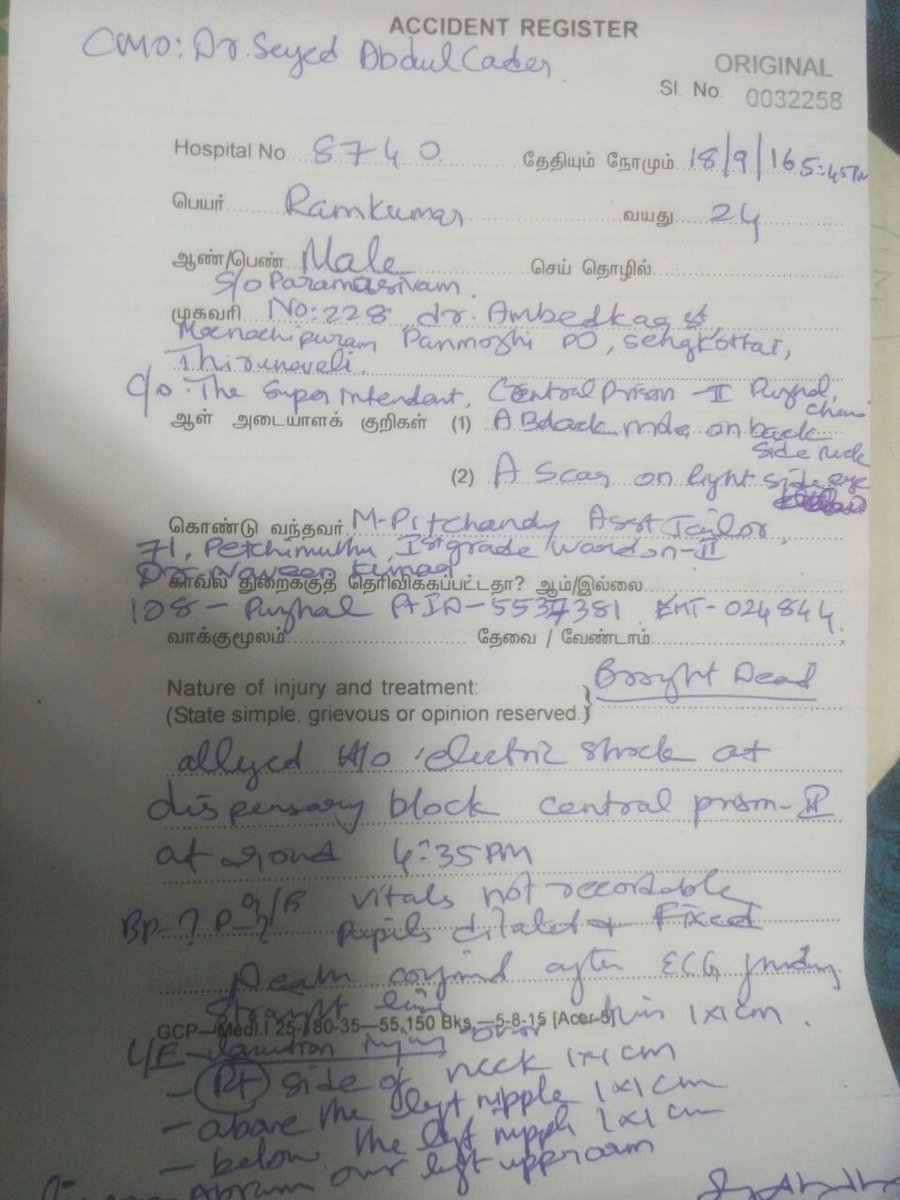 ACCIDENT REGISTER
CMO: Dr. Seyed Abdul Cader
ORIGINAL
Sl. No. 0032258
Hospital No 8740 தேதியும் நேரமும் 18/9/16 5:45 PM
பெயர் Ramkumar வயது 24
ஆண்/பெண் Male செய் தொழில்
S/o Paramasivam
முகவரி No: 228, dr. Ambedkar st
Meenachipuram Panmozhi PO, Sengkottai,
Thirunaveli.
C/o. The Superintendant, Central Prison - II Puzhal,
ஆள் அடையாளக் குறிகள் (1) A Black mole on back
side neck
(2) A Scar on right side eye
கொண்டு வந்தவர் M. Pitchandy Asst Jailor,
71, Petchimuthu, Ist grade warden-II
Dr. Naveen Kumar
காவல் துறைக்குத் தெரிவிக்கப்பட்டதா? ஆம்/இல்லை
108 - Puzhal 5537381 EMT - 024844
வாக்குமூலம் தேவை / வேண்டாம்
Nature of injury and treatment: Brought Dead
(State simple, grievous or opinion reserved.)
alleged H/o electric shock at
dispensary block central prison - II
at around 4:35 PM
vitals not recordable
BP - ? P - ? Pupils dilated + Fixed
Death confirmed after ECG
Straight line
GCP—Medl.I 25-180-35—55,150 Bks.—5-8-15 [Acer-5]
injury over chin 1x1 cm.
- Rt side of neck 1x1 cm
- above the left nipple 1x1 cm
- below the left nipple 1x1 cm
over left upper arm